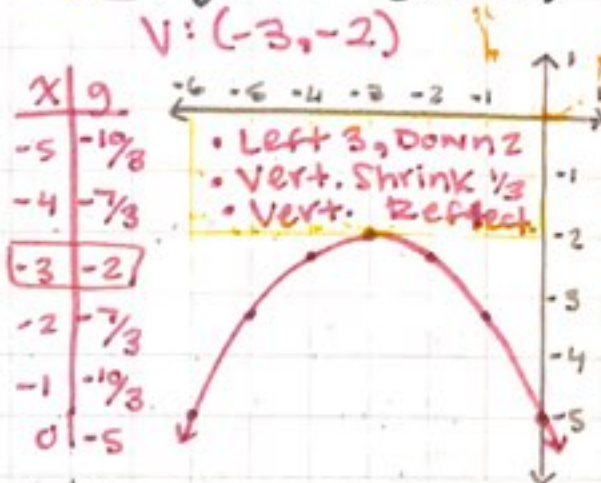 V: (-3,-2)
x y
-5 -10/3
-4 -7/3
-3 -2
-2 -7/3
-1 -10/3
0 -5
-6 -5 -4 -3 -2 -1
1
• Left 3, Down 2
• Vert. Shrink 1/3
• Vert. Reflect
-1
-2
-3
-4
-5